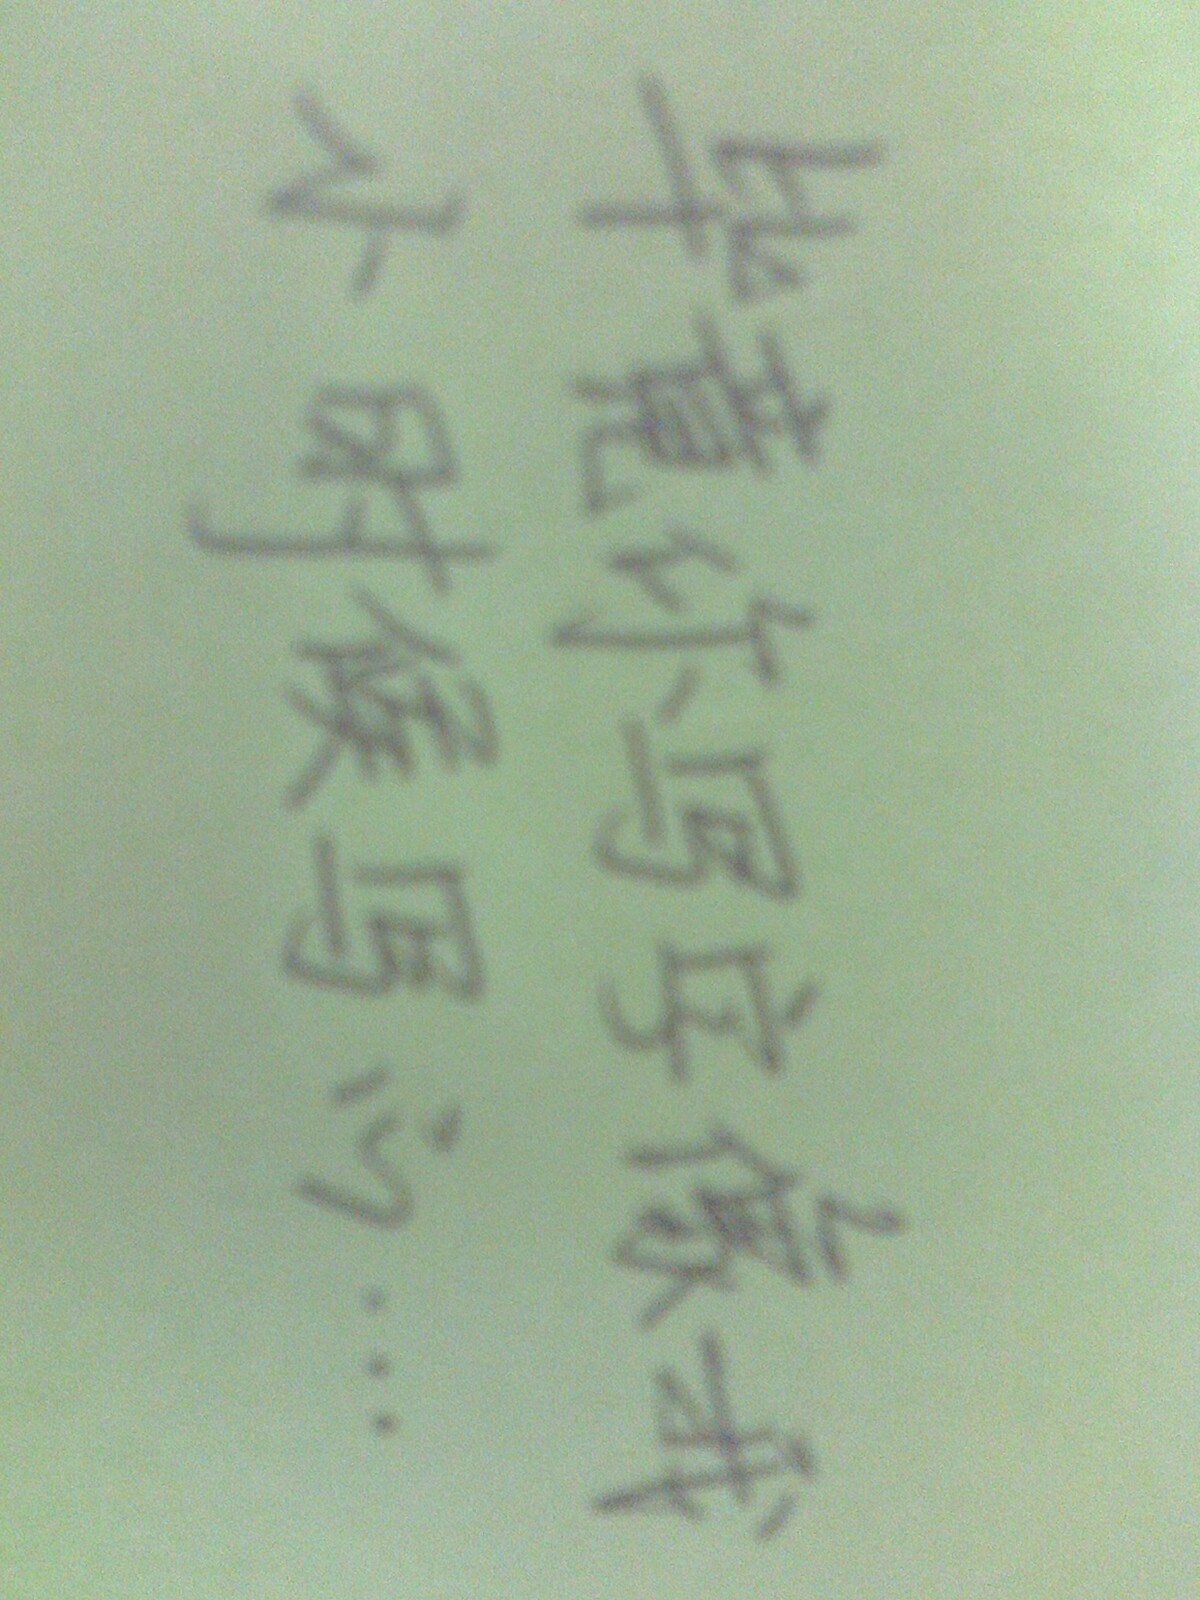 毕竟你写字像我
小时候写的...